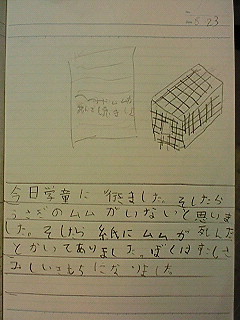 5.23
今日学童に行きました。そしたら
うさぎのムムがいないと思いま
した。そしたら紙にムムが死んだ
とかいてありました。ぼくはすこしさ
みしいきもちになりました。